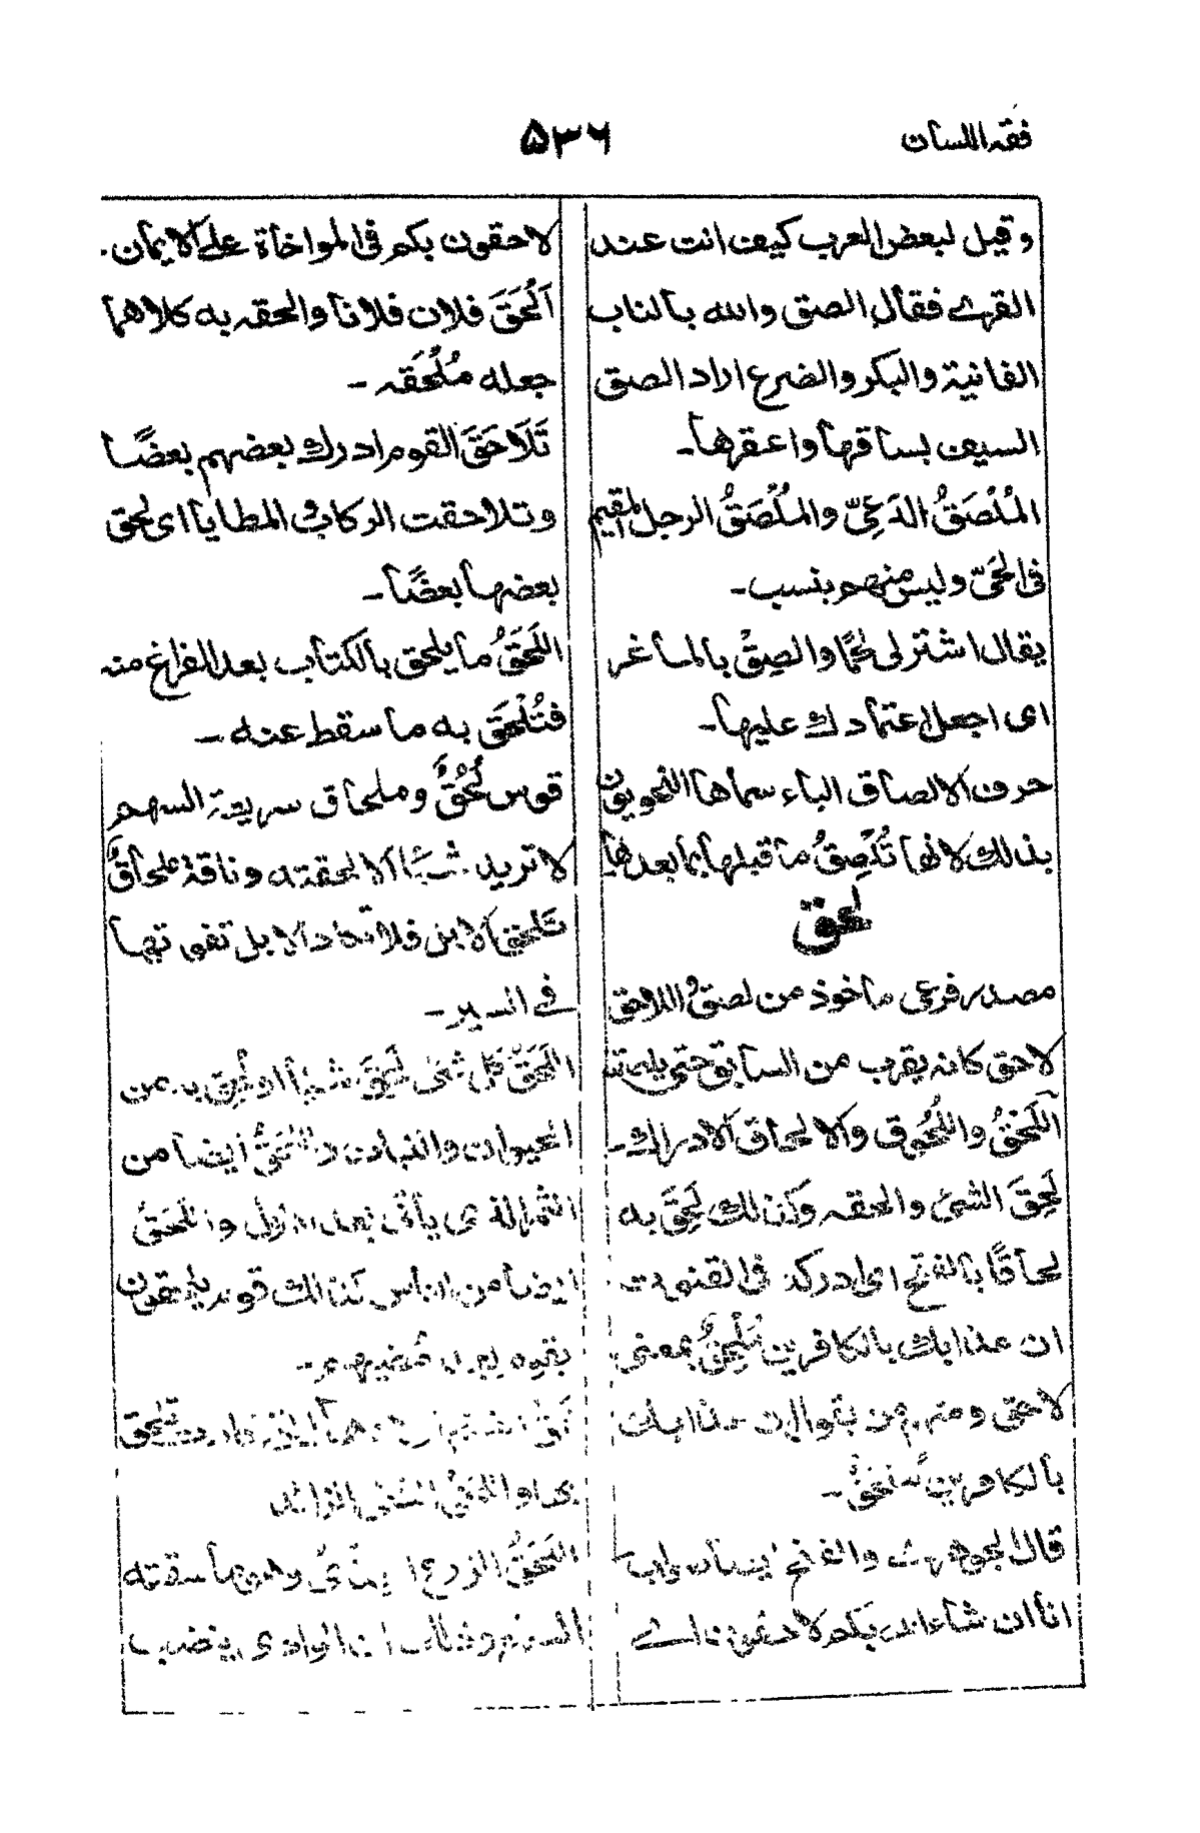 فقه اللسان
۵۳۶
وقيل لبعض العرب كيف انت عند
القرى فقال الصق والله بالناب
الفانية والبكر والضرع اراد الصق
السيف بساقها واعقرها۔
المُلْصَقُ الدَعِىّ والمُلْصَقُ الرجل المقيم
فى الحَىّ وليس منهم بنسب۔
يقال اشتر لى لحمًا والصِقْ بالماغر
اى اجعل اعتمادك عليها۔
حرف الالصاق الباء سماها النحويون
بذلك لانها تُلْصِقُ ما قبلها بما بعدها
لحق
مصدر فرعى ماخوذ من لصق و اللاحق
لاحق كانه يقرب من السابق حتى
اَللَحْقُ واللُحُوق والالحاق الادراك۔
لَحِقَ الشئ والحقه وكذلك لَحِقَ به
لحاقًا بالفتح اى ادركه فى القنوت
ان عذابك بالكافرين مُلْحِقٌ بمعنى
لاحق ومنهم من يقول ان عذابك
بالكافرين مُلْحَقٌ۔
قال الجوهرى والفتح ايضا صواب
انا ان شاء الله بكم لاحقون اے
لاحقون بكم فى المواخاة على الايمان.
اَلْحَقَ فلان فلانا والحقه به كلاهما
جعله مُلْحَقه ۔
تَلَاحَقَ القوم ادرك بعضهم بعضًا
وتلاحقت الركاب والمطايا اى لحق
بعضها بعضًا۔
اللَحَقُ ما يلحق بالكتاب بعد الفراغ منه
فتُلْحَق به ما سقط عنه ۔
قوس لُحُقٌ وملحاق سريعة السهم
لا تريد شيئًا الا لحقته وناقة ملحاقٌ
تلحق الابل فلا تكاد الابل تفوتها
فے السير ۔
اللَحَقُ كل شئ لَحِقَ شيئا او لُحِقَ به من
الحيوان والنبات و اللَحَقُ ايضا من
الثمر الذى يأتى بعد الاول واللَحَقُ
ايضا من الناس كذالك قوم يلحقون
بقوم بعد مُضيهم ۔
بها واللَحَقُ الشئ الزائد
اللَحَقُ الزرع العِذْىُ وهو ما سقته
السماء ان الوادى ينضب